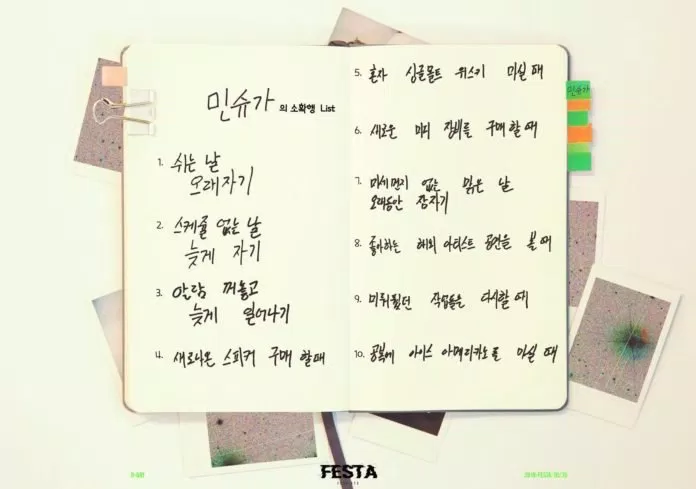 민슈가의 소확행 List
1. 쉬는 날
오래자기
2. 스케쥴 없는 날
늦게 자기
3. 알람 꺼놓고
늦게 일어나기
4. 새로나온 스피커 구매 할때
5. 혼자 싱글몰트 위스키 마실 때
6. 새로운 미디 장비를 구매할 때
7. 미세먼지 없는 맑은 날
오래동안 잠자기
8. 좋아하는 해외 아티스트 공연을 볼 때
9. 미뤄뒀던 작업들을 다시할 때
10. 공복에 아이스 아메리카노를 마실 때
민슈가
FESTA